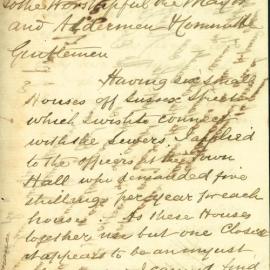 To the Worshipful the Mayor
and Aldermen & Committee
Gentlemen
Having six small
Houses off Sussex Street
which I wish to connect
with the Sewers I applied
to the officers at the Town
Hall who demanded five
shillings per year for each
house. As these Houses
together use but one Closet
it appears to be an unjust